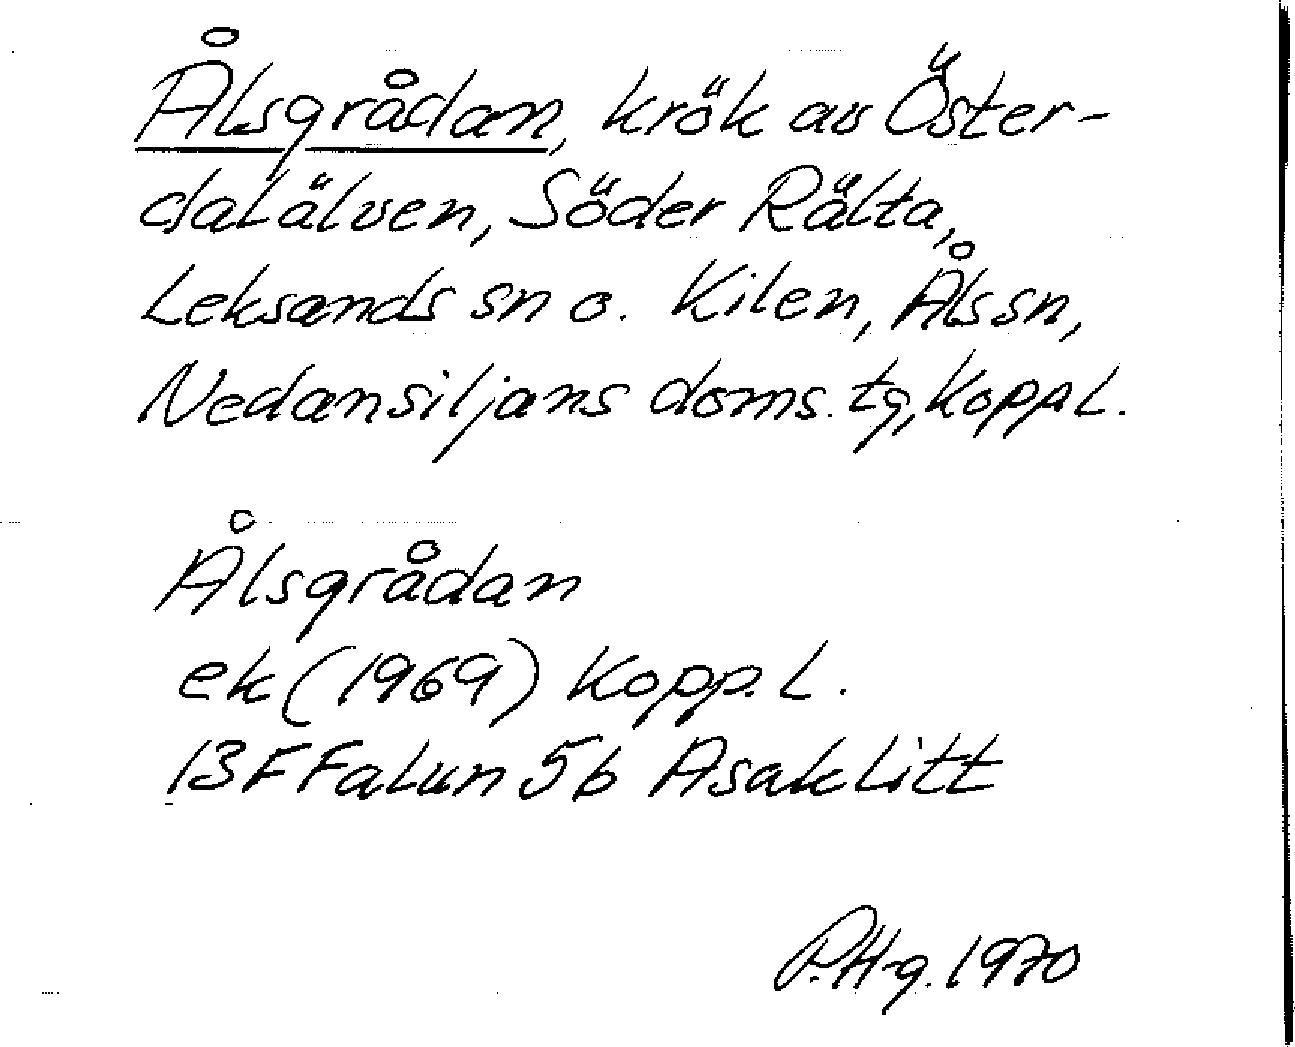 Ålsgrådan, krök av Öster-
dalälven, Söder Rälta,
Leksands sn o. Kilen, Åls sn,
Nedansiljans doms. tg, Koppl.
Ålsgrådan
ek (1969) Kopp. l.
13F Falun 5b Asaklitt
P.H-g. 1970